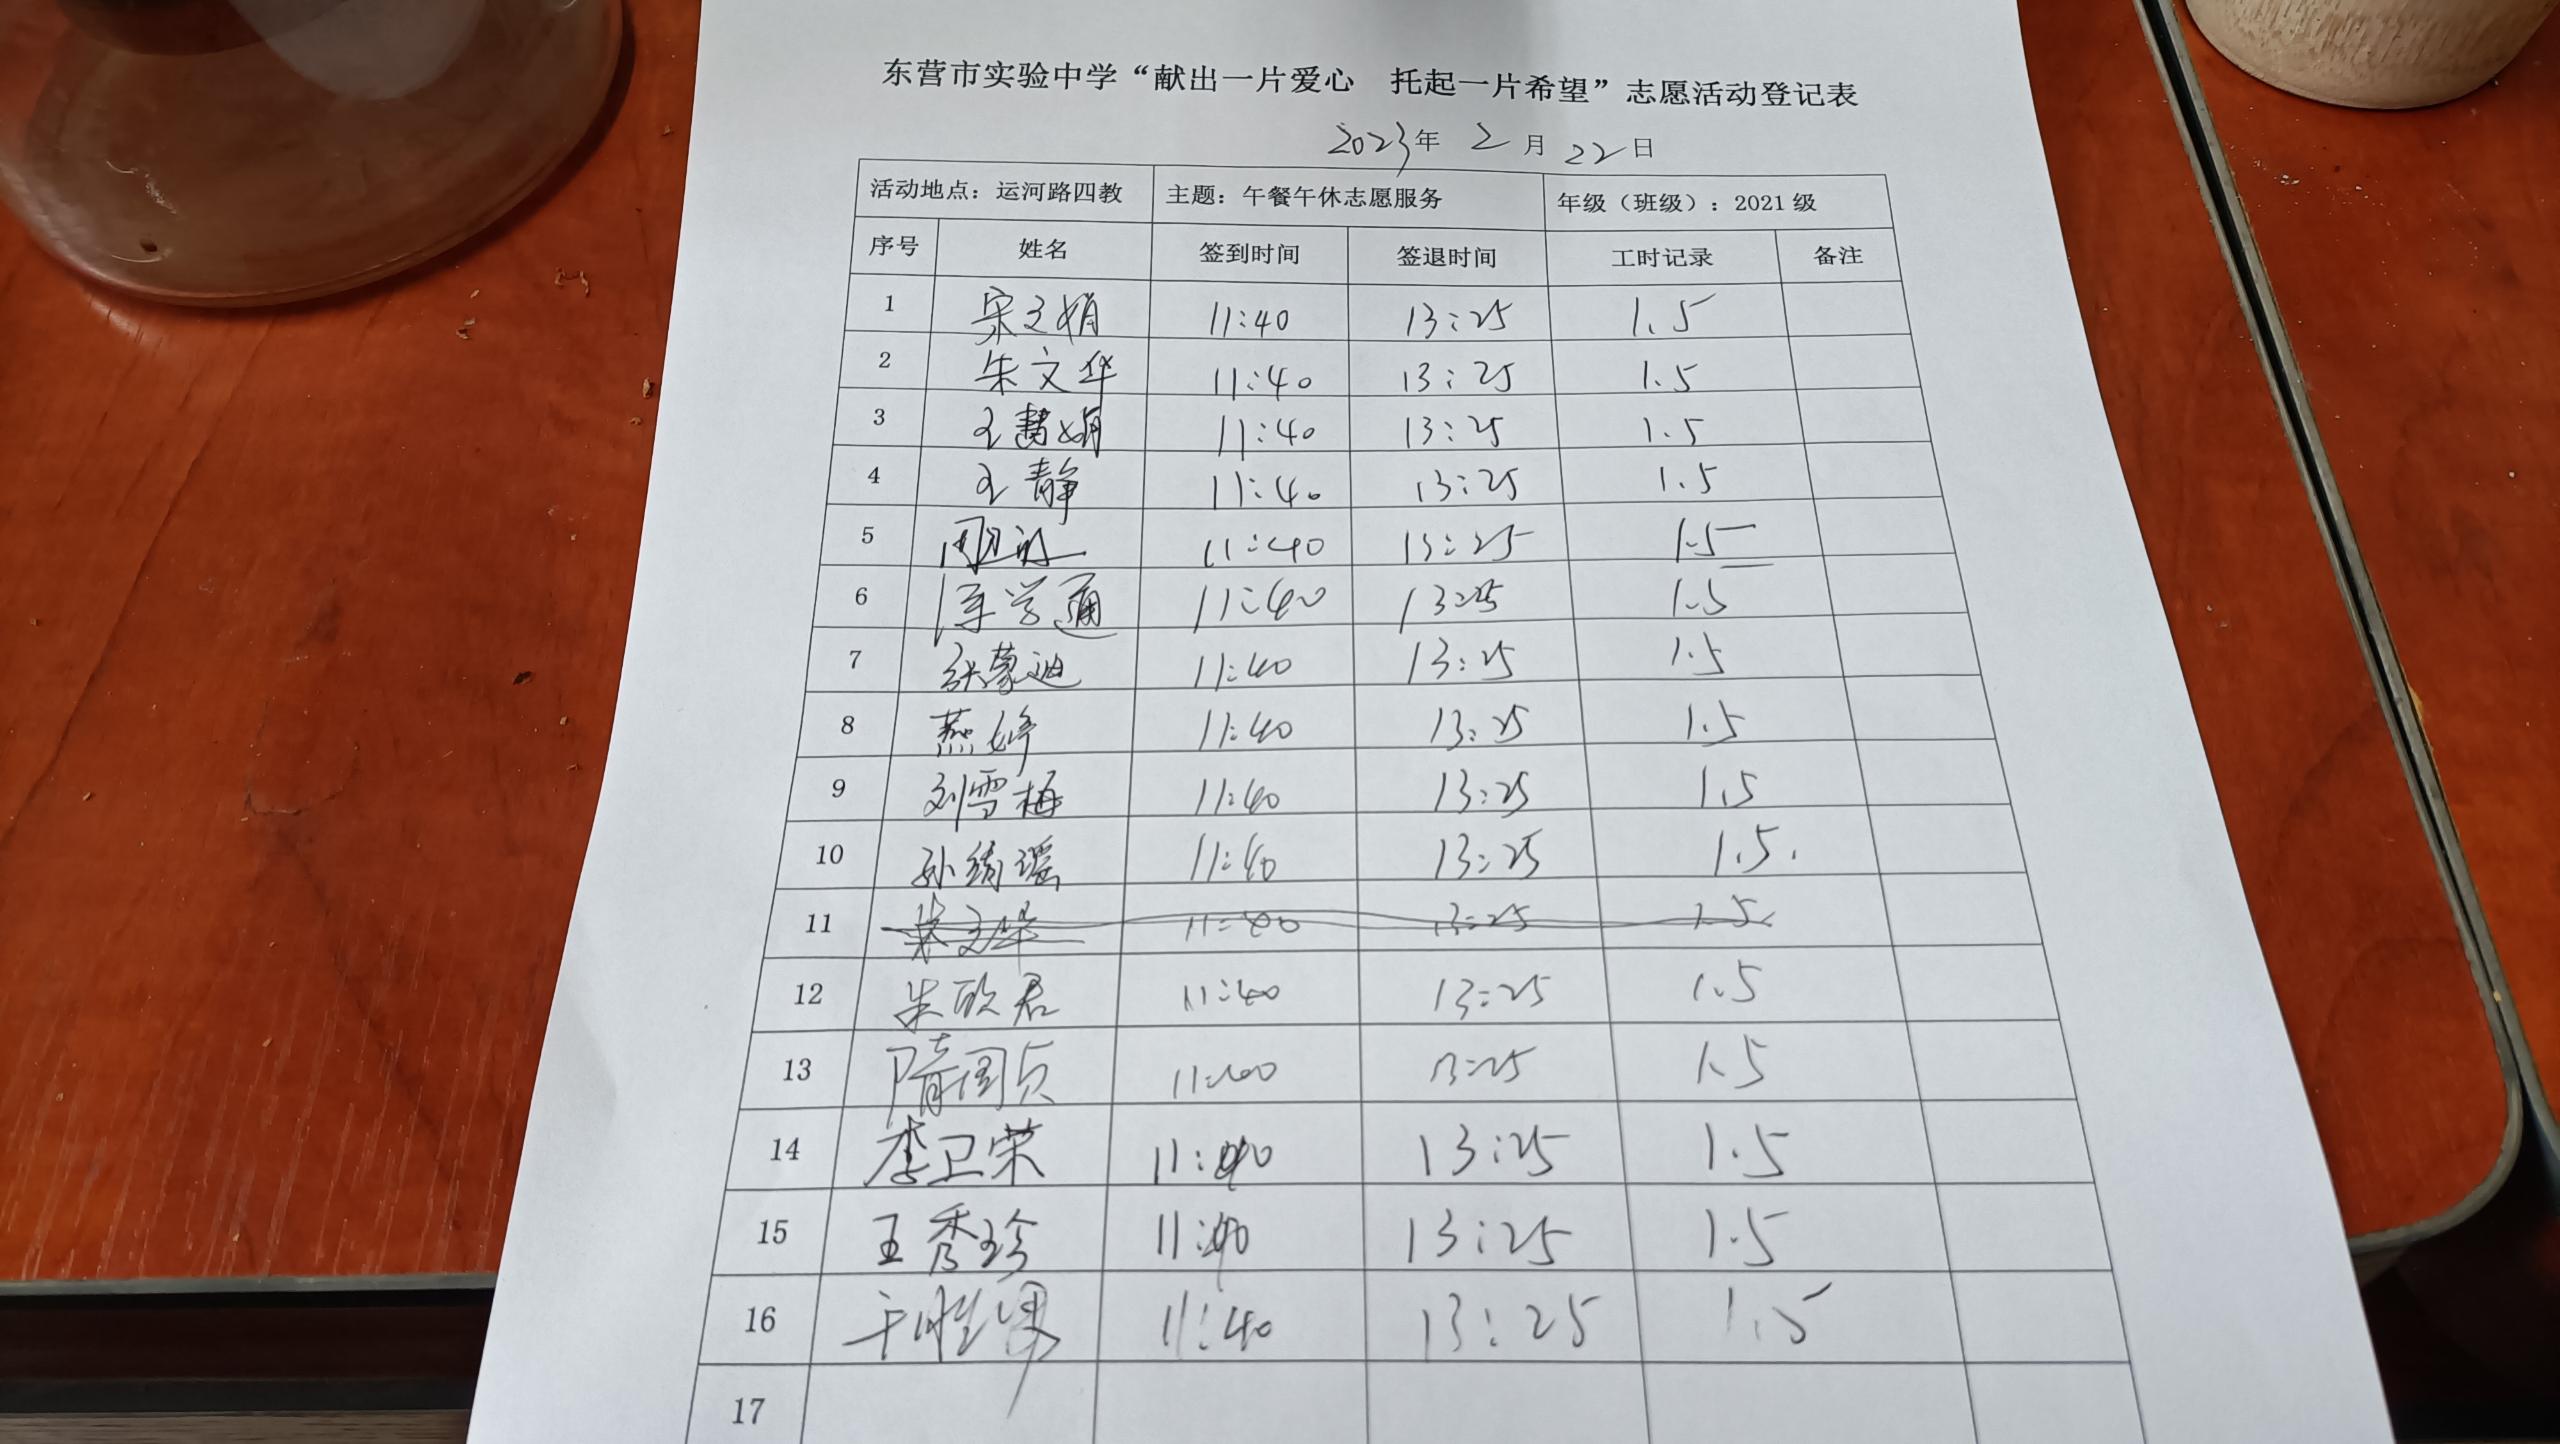 东营市实验中学“献出一片爱心 托起一片希望”志愿活动登记表
2023年 2 月 22 日
活动地点：运河路四教 主题：午餐午休志愿服务 年级（班级）：2021 级
序号 姓名 签到时间 签退时间 工时记录 备注
1 宋文娟 11:40 13:25 1.5
2 朱文华 11:40 13:25 1.5
3 王慧娟 11:40 13:25 1.5
4 王静 11:40 13:25 1.5
5 11:40 13:25 1.5
6 学通 11:40 13:25 1.5
7 张蒙迪 11:40 13:25 1.5
8 燕婷 11:40 13:25 1.5
9 刘雪梅 11:40 13:25 1.5
10 孙绮瑶 11:40 13:25 1.5.
11 朱文华 11:40 13:25 1.5
12 朱欣君 11:40 13:25 1.5
13 隋国贞 11:40 13:25 1.5
14 李卫荣 11:40 13:25 1.5
15 王秀珍 11:40 13:25 1.5
16 于胜男 11:40 13:25 1.5
17